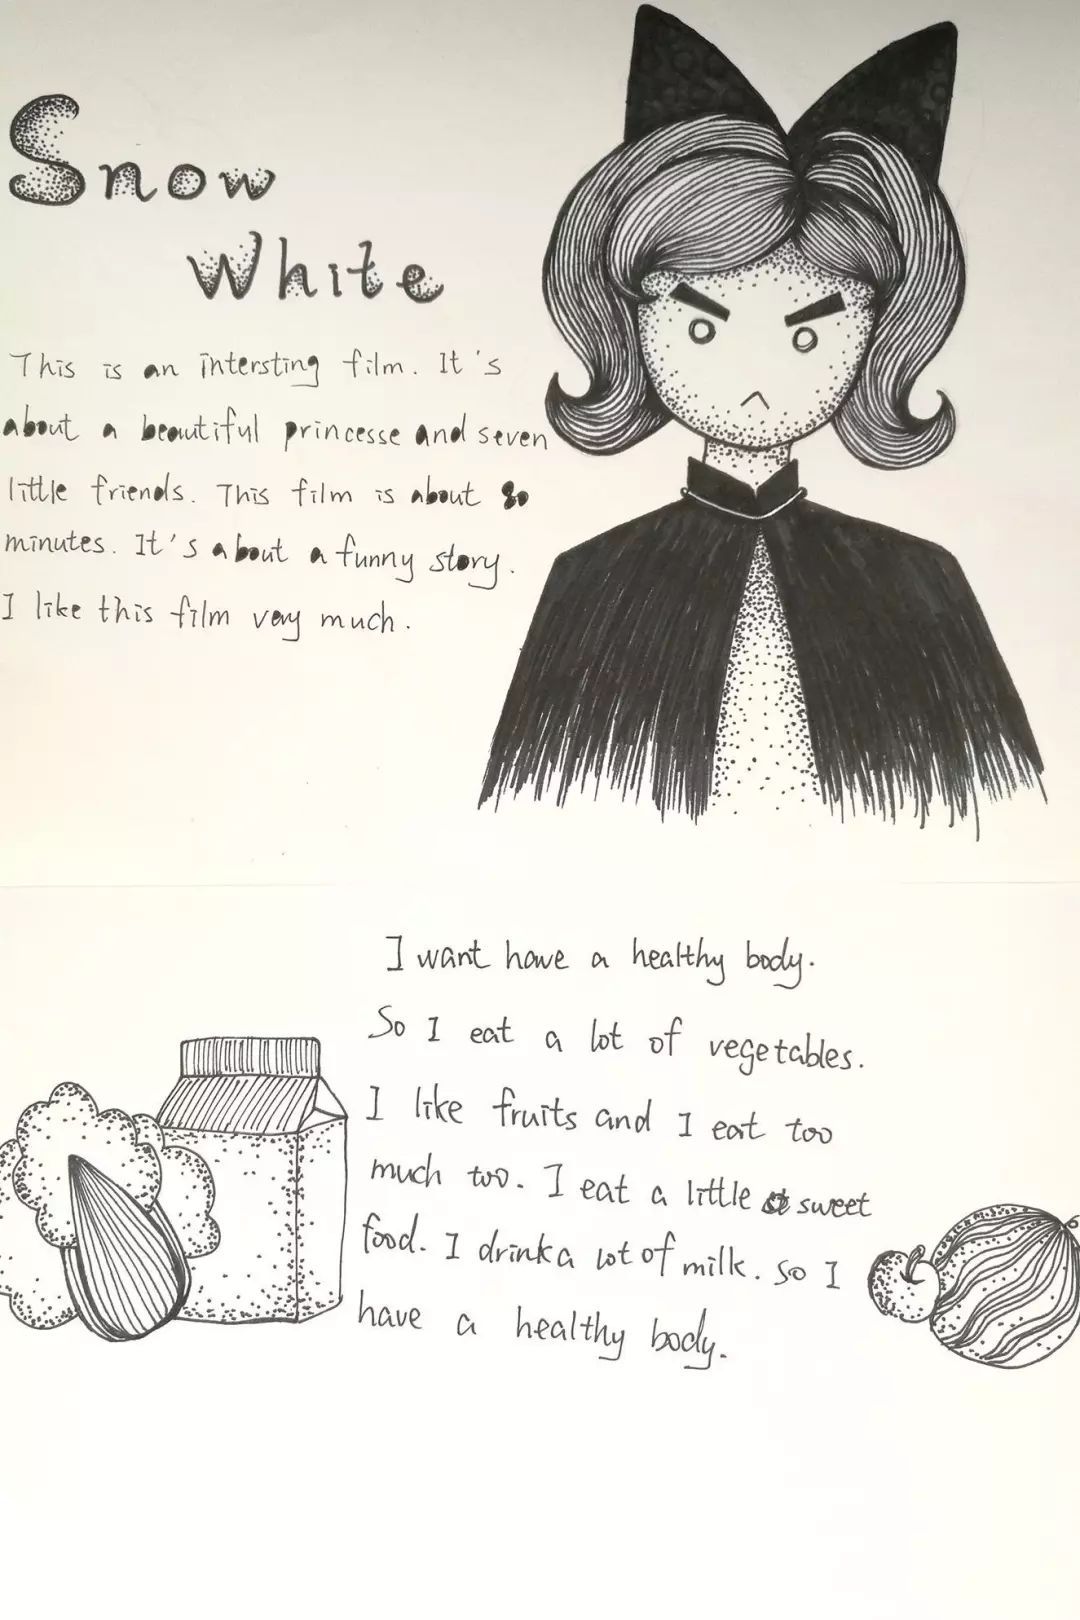 Snow
White
This is an intersting film. It's
about a beautiful princesse and seven
little friends. This film is about 80
minutes. It's about a funny story.
I like this film very much.
I want have a healthy body.
So I eat a lot of vegetables.
I like fruits and I eat too
much too. I eat a little sweet
food. I drink a lot of milk. So I
have a healthy body.